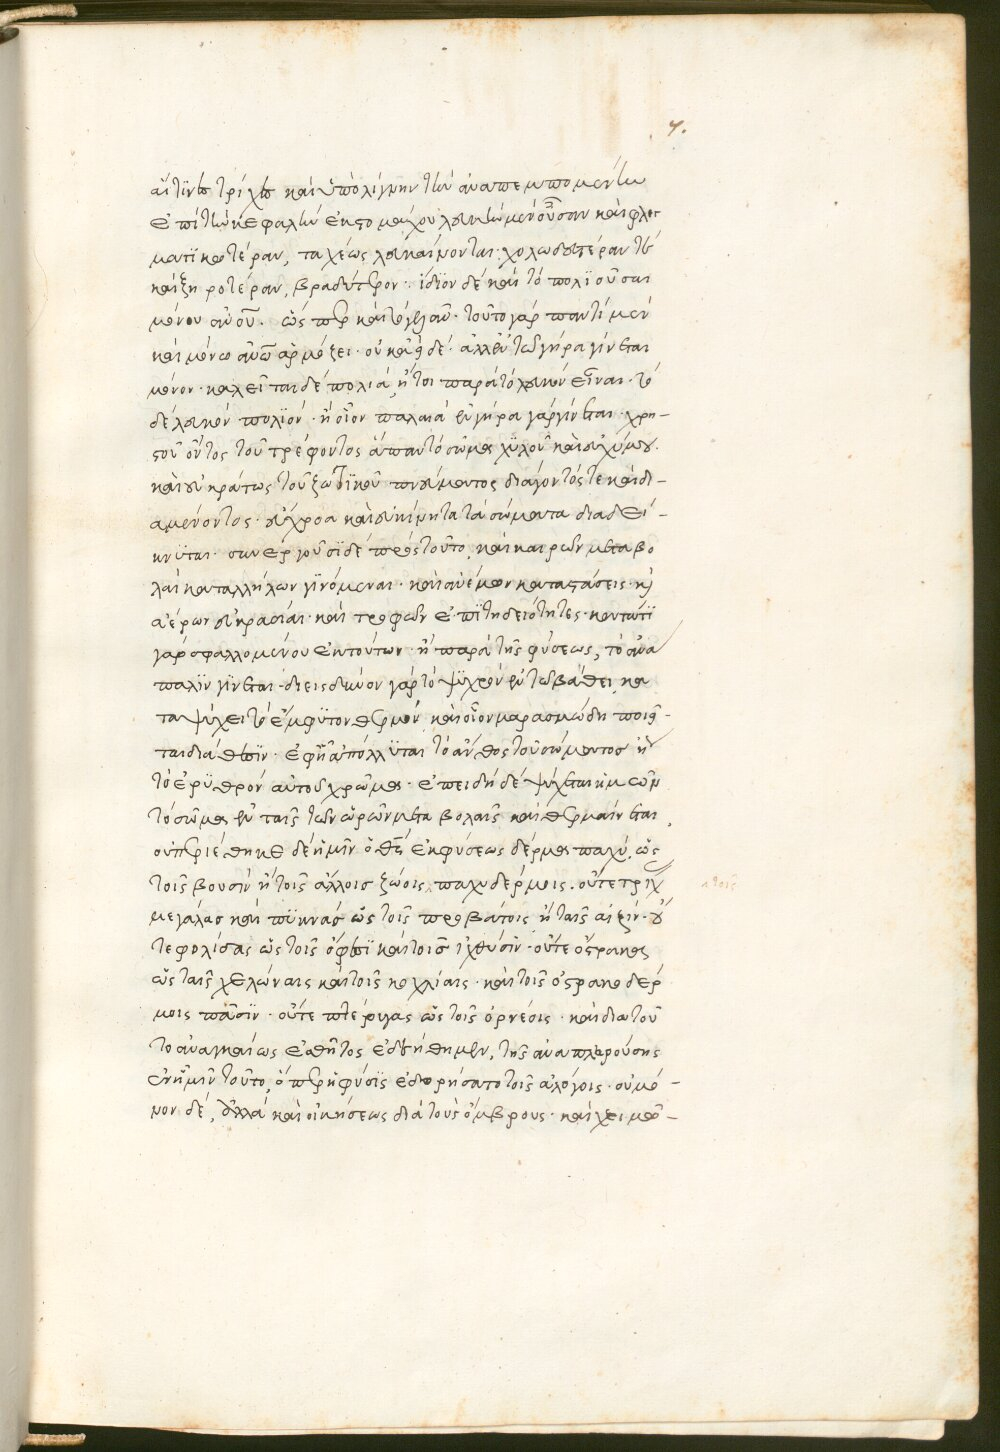 7.
αἵτινες τρίχες καὶ ὑπὸ λίγνην τὴν ἀναπεμπομένην
ἐπὶ τὴν κεφαλὴν ἐκ στομάχου λευκὴν μὲν οὖσαν καὶ φλεγ
ματικωτέραν, ταχέως λευκαίνονται· χολωδεστέραν τὲ
καὶ ξηροτέραν, βραδύτερον· ἴδϊον δὲ καὶ τὸ πολϊοῦσθαι
μόνου ἀνοῦ. ὥσπερ καὶ τὸ γελᾶν· τοῦτο γὰρ παντὶ μὲν
καὶ μόνω ἀνω ἁρμόζει· οὐκ ἀεὶ δέ· ἀλλ' ἐν τῶ γήρα γίνεται
μόνον· καλεῖται δὲ πολιὰ, ἤτοι παρὰ τὸ λευκὸν εἶναι· τὸ
δὲ λευκὸν πολϊόν· ἢ οἷον παλαιὰ ἐν γήρα γὰρ γίνεται· χρη-
στοῦ ὄντος τοῦ τρέφοντος ἅπαν τὸ σῶμα χϋλοῦ καὶ εὐχύμου·
καὶ εὐκράτως τοῦ ζωτϊκοῦ πνεύματος διάγοντός τε καὶ δι-
αμένοντος· εὔχροα καὶ εὐκίνητα τὰ σώματα διαδεί-
κνϋται· συνεργοῦσϊ δὲ πρὸς τοῦτο, καὶ καιρῶν μεταβο
λαὶ καταλλήλων γϊνόμεναι· καὶ ἀνέμων καταστάσεις· καὶ
ἀέρων εὐκρασίαι· καὶ τροφῶν ἐπϊτηδειότητες· κατά τϊ
γὰρ σφαλλομένου ἐκ τούτων· ἢ παρὰ τῆς φύσεως, τὸ ἀνά
παλϊν γίνεται· διεισδῦνον γὰρ τὸ ψῦχρὸν ἐν τῶ βάθει, κα
ταψύχει τὸ ἔμφϋτον θερμὸν, καὶ οἷον μαρασμώδη ποιεῖ-
ται διάθεσϊν· ἐφ' ἧ ἀπόλλϋται τὸ ἄνθος τοῦ σώματος ἢ
τὸ ἐρϋθρὸν αὐτοῦ χρῶμα· ἐπειδὴ δὲ ψύχεται ἡμῶν
τὸ σῶμα ἐν ταῖς τῶν ὡρῶν μεταβολαῖς καὶ θερμαίνεται,
οὐ περιέθηκε δὲ ἡμῖν ὁ θς ἐκ φύσεως δέρμα παχὺ, ὡς
τοῖς βουσὶν ἢ τοῖς ἄλλοις ζώοις παχυδέρμοις. οὔτε τρίχ
μεγάλας καὶ πϋκνὰς ὡς τοῖς προβάτοις ἢ ταῖς αἰξίν· οὔ
τε φολίδας ὡς τοῖς ὄφεσϊ καὶ τοῖς ἰχθύσϊν· οὔτε ὄστρακα
ὡς ταῖς χελώναις καὶ τοῖς κοχλίαις· καὶ τοῖς ὀστρακοδέρ
μοις πᾶσϊν· οὔτε πτέρυγας ὡς τοῖς ὀρνέοις· καὶ δια τοῦ
το ἀναγκαίως ἐσθῆτος ἐδεήθημεν, τῆς ἀναπληρούσης
ἐν ἡμῖν τοῦτο, ὅπερ ἡ φύσϊς ἐδωρήσατο τοῖς ἀλόγοις· οὐ μό-
νον δέ, ἀλλὰ καὶ οἰκήσεως διὰ τοὺς ὄμβρους· καὶ χειμῶ-